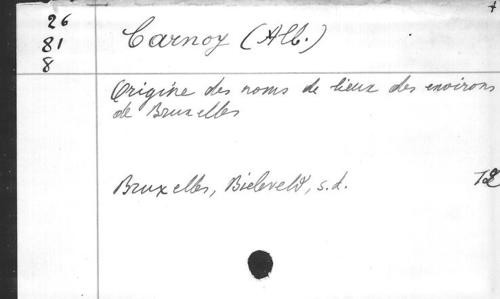 26
81
8
Carnoy (Alb.)
Origine des noms de lieux des environs
de Bruxelles
Bruxelles, Bieleveld, s.d.